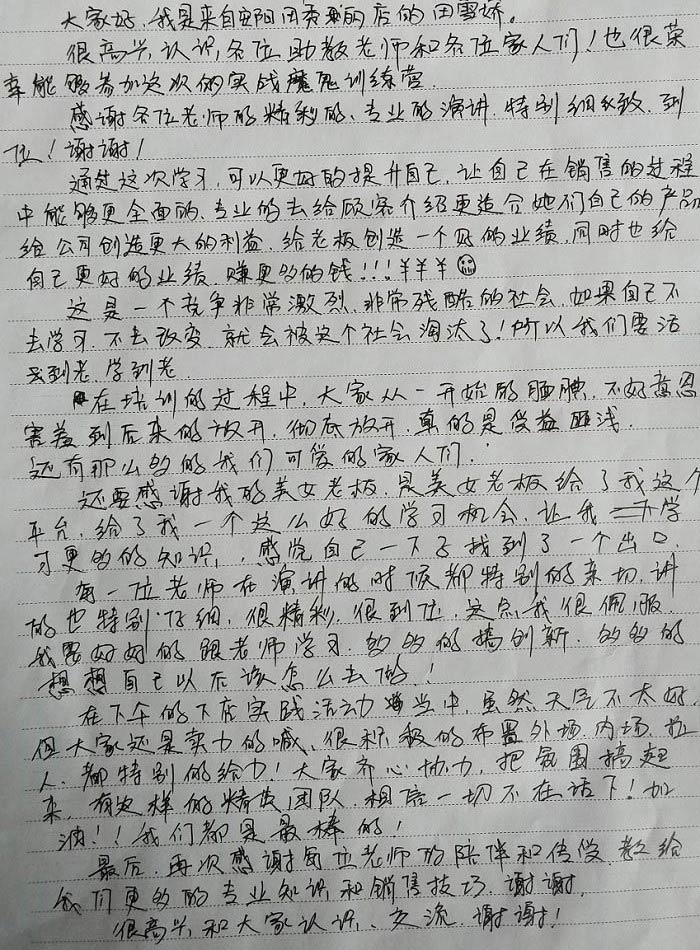 大家好，我是来自安阳周秀丽店的田雪娇。
很高兴认识各位助教老师和各位家人们！也很荣
幸能够参加这次的实战魔鬼训练营.
感谢各位老师的精彩的、专业的演讲.特别细致.到
位！谢谢！
通过这次学习，可以更好的提升自己，让自己在销售的过程
中能够更全面的、专业的去给顾客介绍更适合她们自己的产品
给公司创造更大的利益.给老板创造一个好的业绩.同时也给
自己更好的业绩 赚更多的钱！！！￥￥￥
这是一个竞争非常激烈.非常残酷的社会.如果自己不
去学习.不去改变 就会被这个社会淘汰了！所以我们要活
到老.学到老
在培训的过程中，大家从一开始的腼腆.不好意思
害羞到后来的放开.彻底放开.真的是受益匪浅.
还有那么多的我们可爱的家人们.
还要感谢我的美女老板.是美女老板给了我这个
平台.给了我一个这么好的学习机会.让我学
习更多的知识，感觉自己一下子找到了一个出口.
每一位老师在演讲的时候都特别的亲切.讲
的也特别仔细.很精彩.很到位.这点我很佩服.
我要好好的跟老师学习.多多的搞创新.多多的
想想自己以后该怎么去做！
在下午的下店实践活动当中.虽然天气不太好.
但大家还是卖力的喊、很积极的布置外场.内场.拉
人.都特别的给力！大家齐心协力，把氛围搞起
来.有这样的精英团队.相信一切不在话下！加
油！！我们都是最棒的！
最后.再次感谢每位老师的陪伴和传授 教给
我们更多的专业知识和销售技巧.谢谢.
很高兴和大家认识、交流.谢谢！